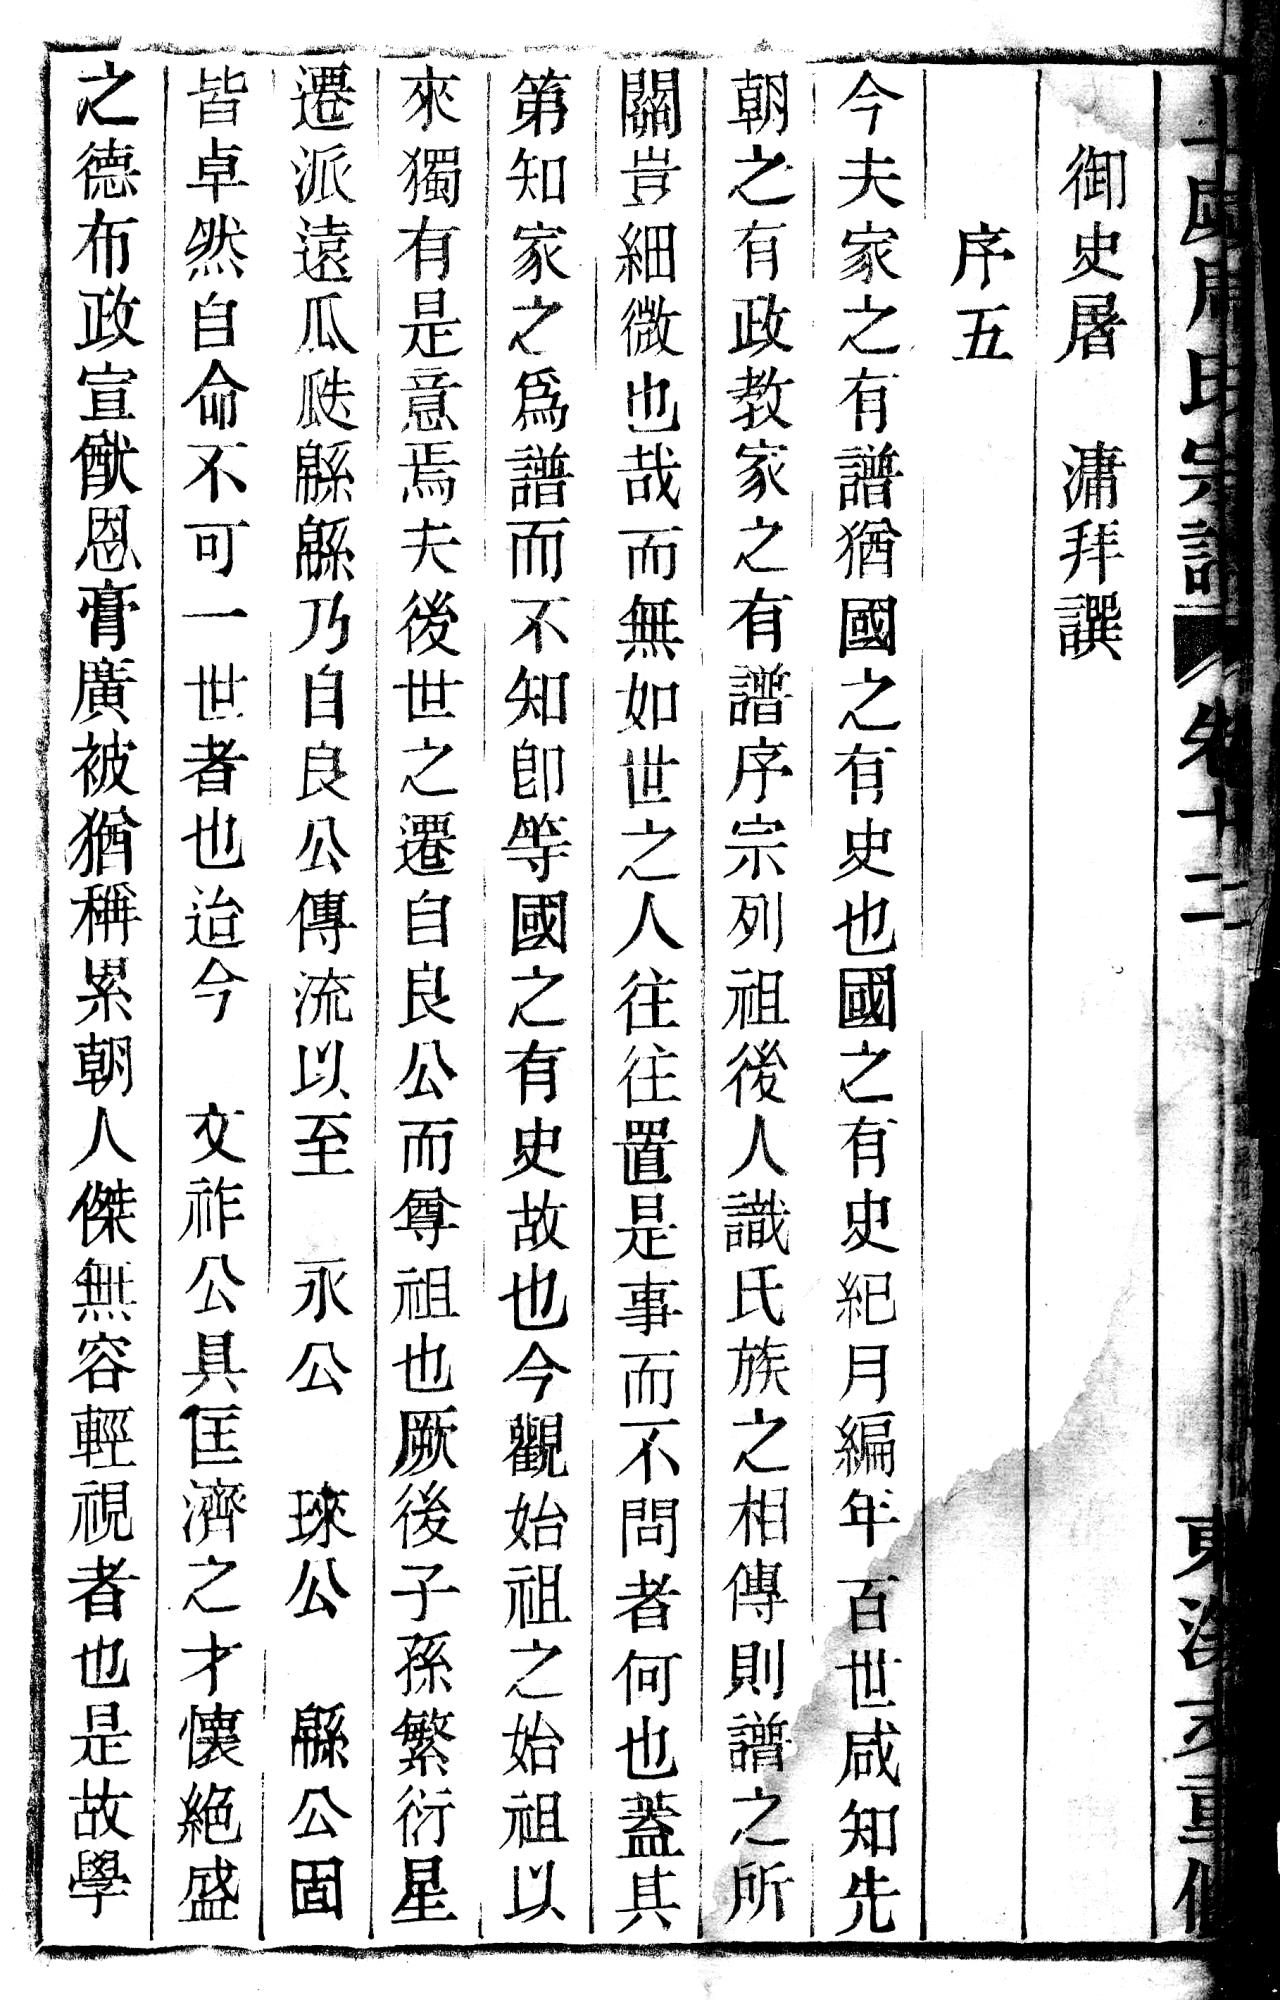 氏宗譜 卷十二 東 支重修
御史屠 滽拜譔
序五
今夫家之有譜猶國之有史也國之有史紀月編年百世咸知先
朝之有政教家之有譜序宗列祖後人識氏族之相傳則譜之所
關豈細微也哉而無如世之人往往置是事而不問者何也蓋其
第知家之爲譜而不知卽等國之有史故也今觀始祖之始祖以
來獨有是意焉夫後世之遷自良公而尊祖也厥後子孫繁衍星
遷派遠瓜瓞緜緜乃自良公傳流以至 永公 琜公 緜公固
皆卓然自命不可一世者也迨今 文祚公具匡濟之才懷絕盛
之德布政宣猷恩膏廣被猶稱累朝人傑無容輕視者也是故學